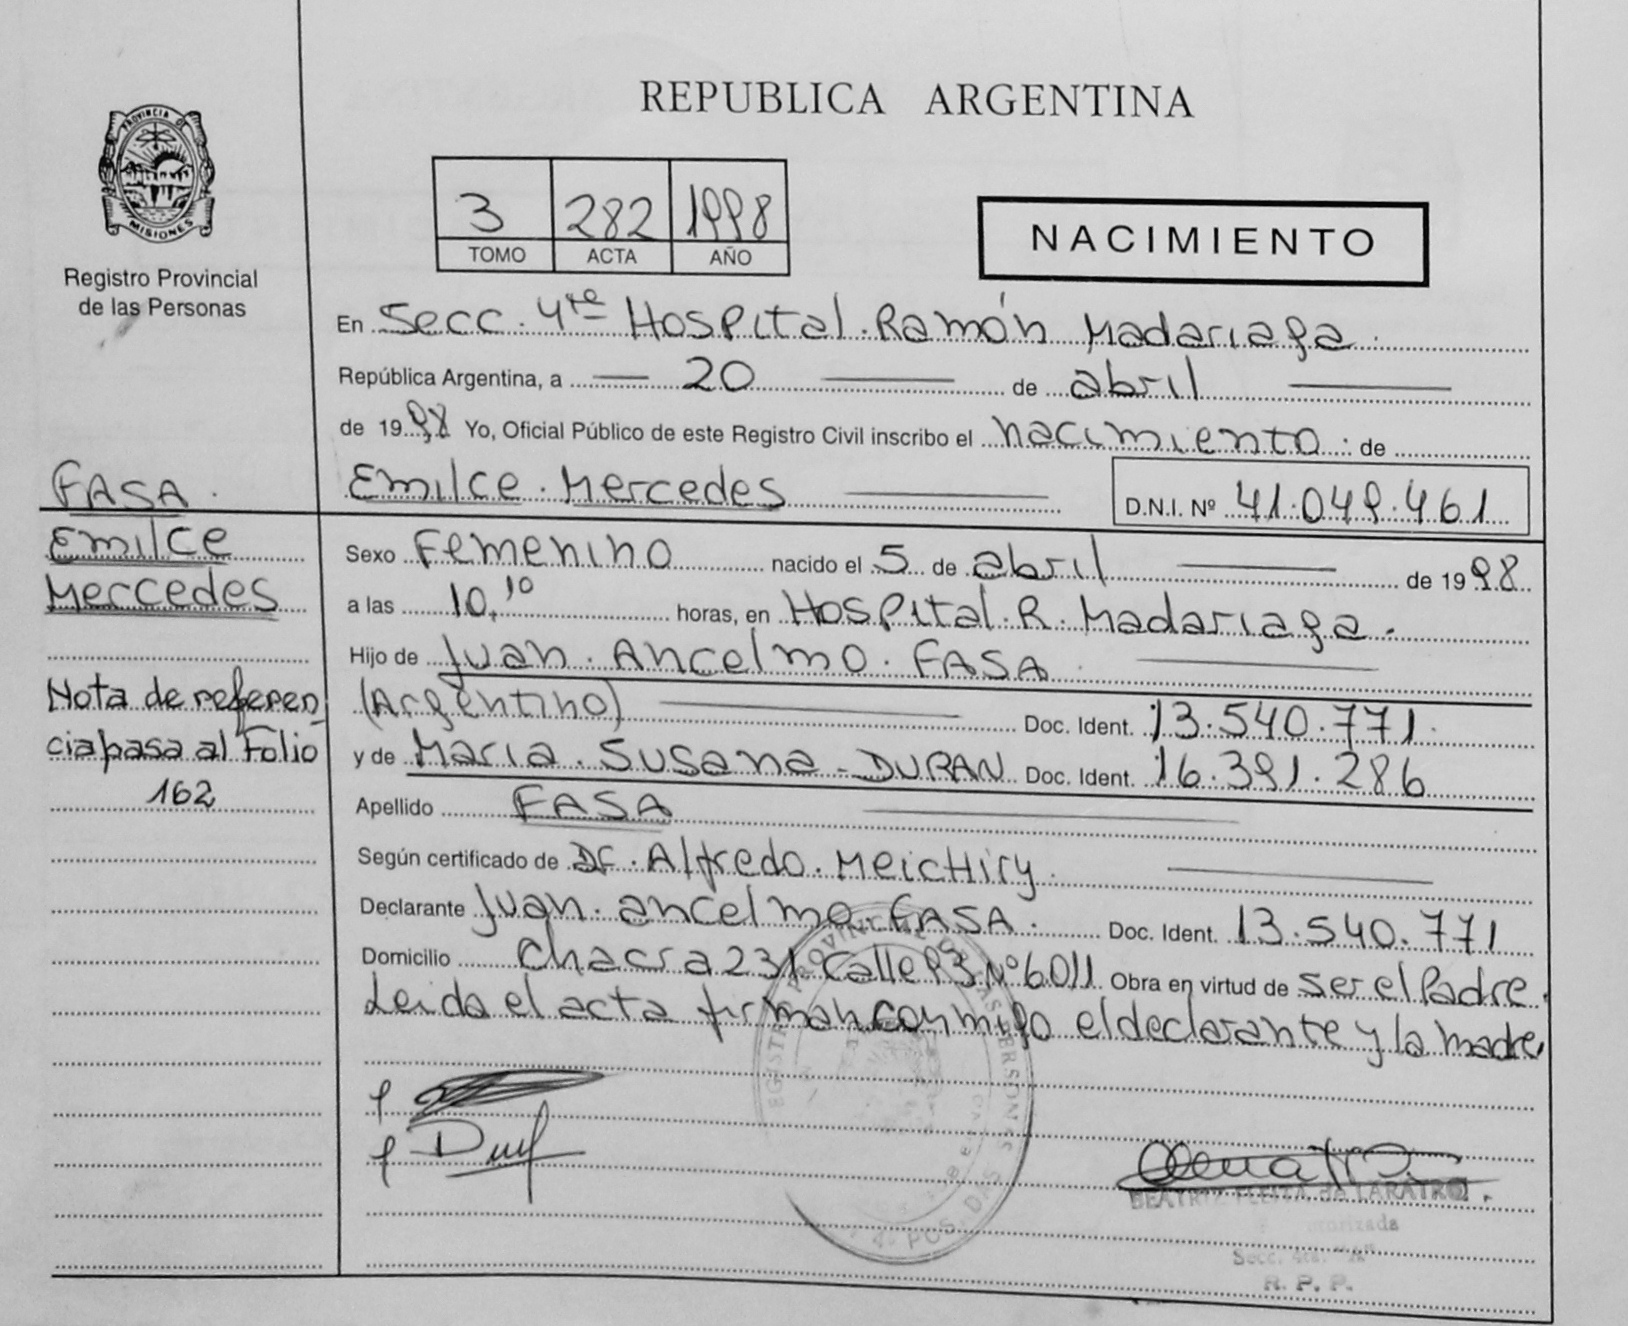 PROVINCIA DE
MISIONES
Registro Provincial
de las Personas
REPUBLICA ARGENTINA
3 282 1998
TOMO ACTA AÑO
NACIMIENTO
En Secc. 4ta Hospital. Ramón Madariaga.
República Argentina, a 20 de abril
de 1998 Yo, Oficial Público de este Registro Civil inscribo el nacimiento: de
Emilce. Mercedes
D.N.I. Nº 41.049.461
Sexo Femenino nacido el 5 de abril de 1998
a las 10,10 horas, en Hospital. R. Madariaga.
Hijo de Juan. Ancelmo. FASA.
(Argentino) Doc. Ident. 13.540.771.
y de Maria. Susana - DURAN Doc. Ident. 16.391.286
Apellido FASA
Según certificado de Dr. Alfredo. MeicHiry.
Declarante Juan. ancelmo. FASA. Doc. Ident. 13.540.771
Domicilio Chacra 231 Calle 93 Nº 6011 Obra en virtud de ser el Padre.
Leida el acta firman conmigo el declarante y la madre
FASA.
Emilce
Mercedes
Nota de referen
cia pasa al Folio
162
BEATRIZ FLEITA de LARATRO
Secc. 4ta. "A"
R. P. P.